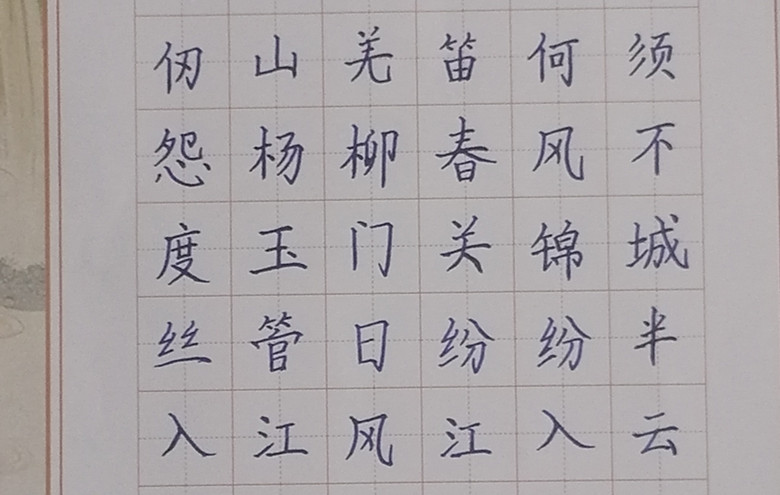 仞山羌笛何须
怨杨柳春风不
度玉门关锦城
丝管日纷纷半
入江风江入云